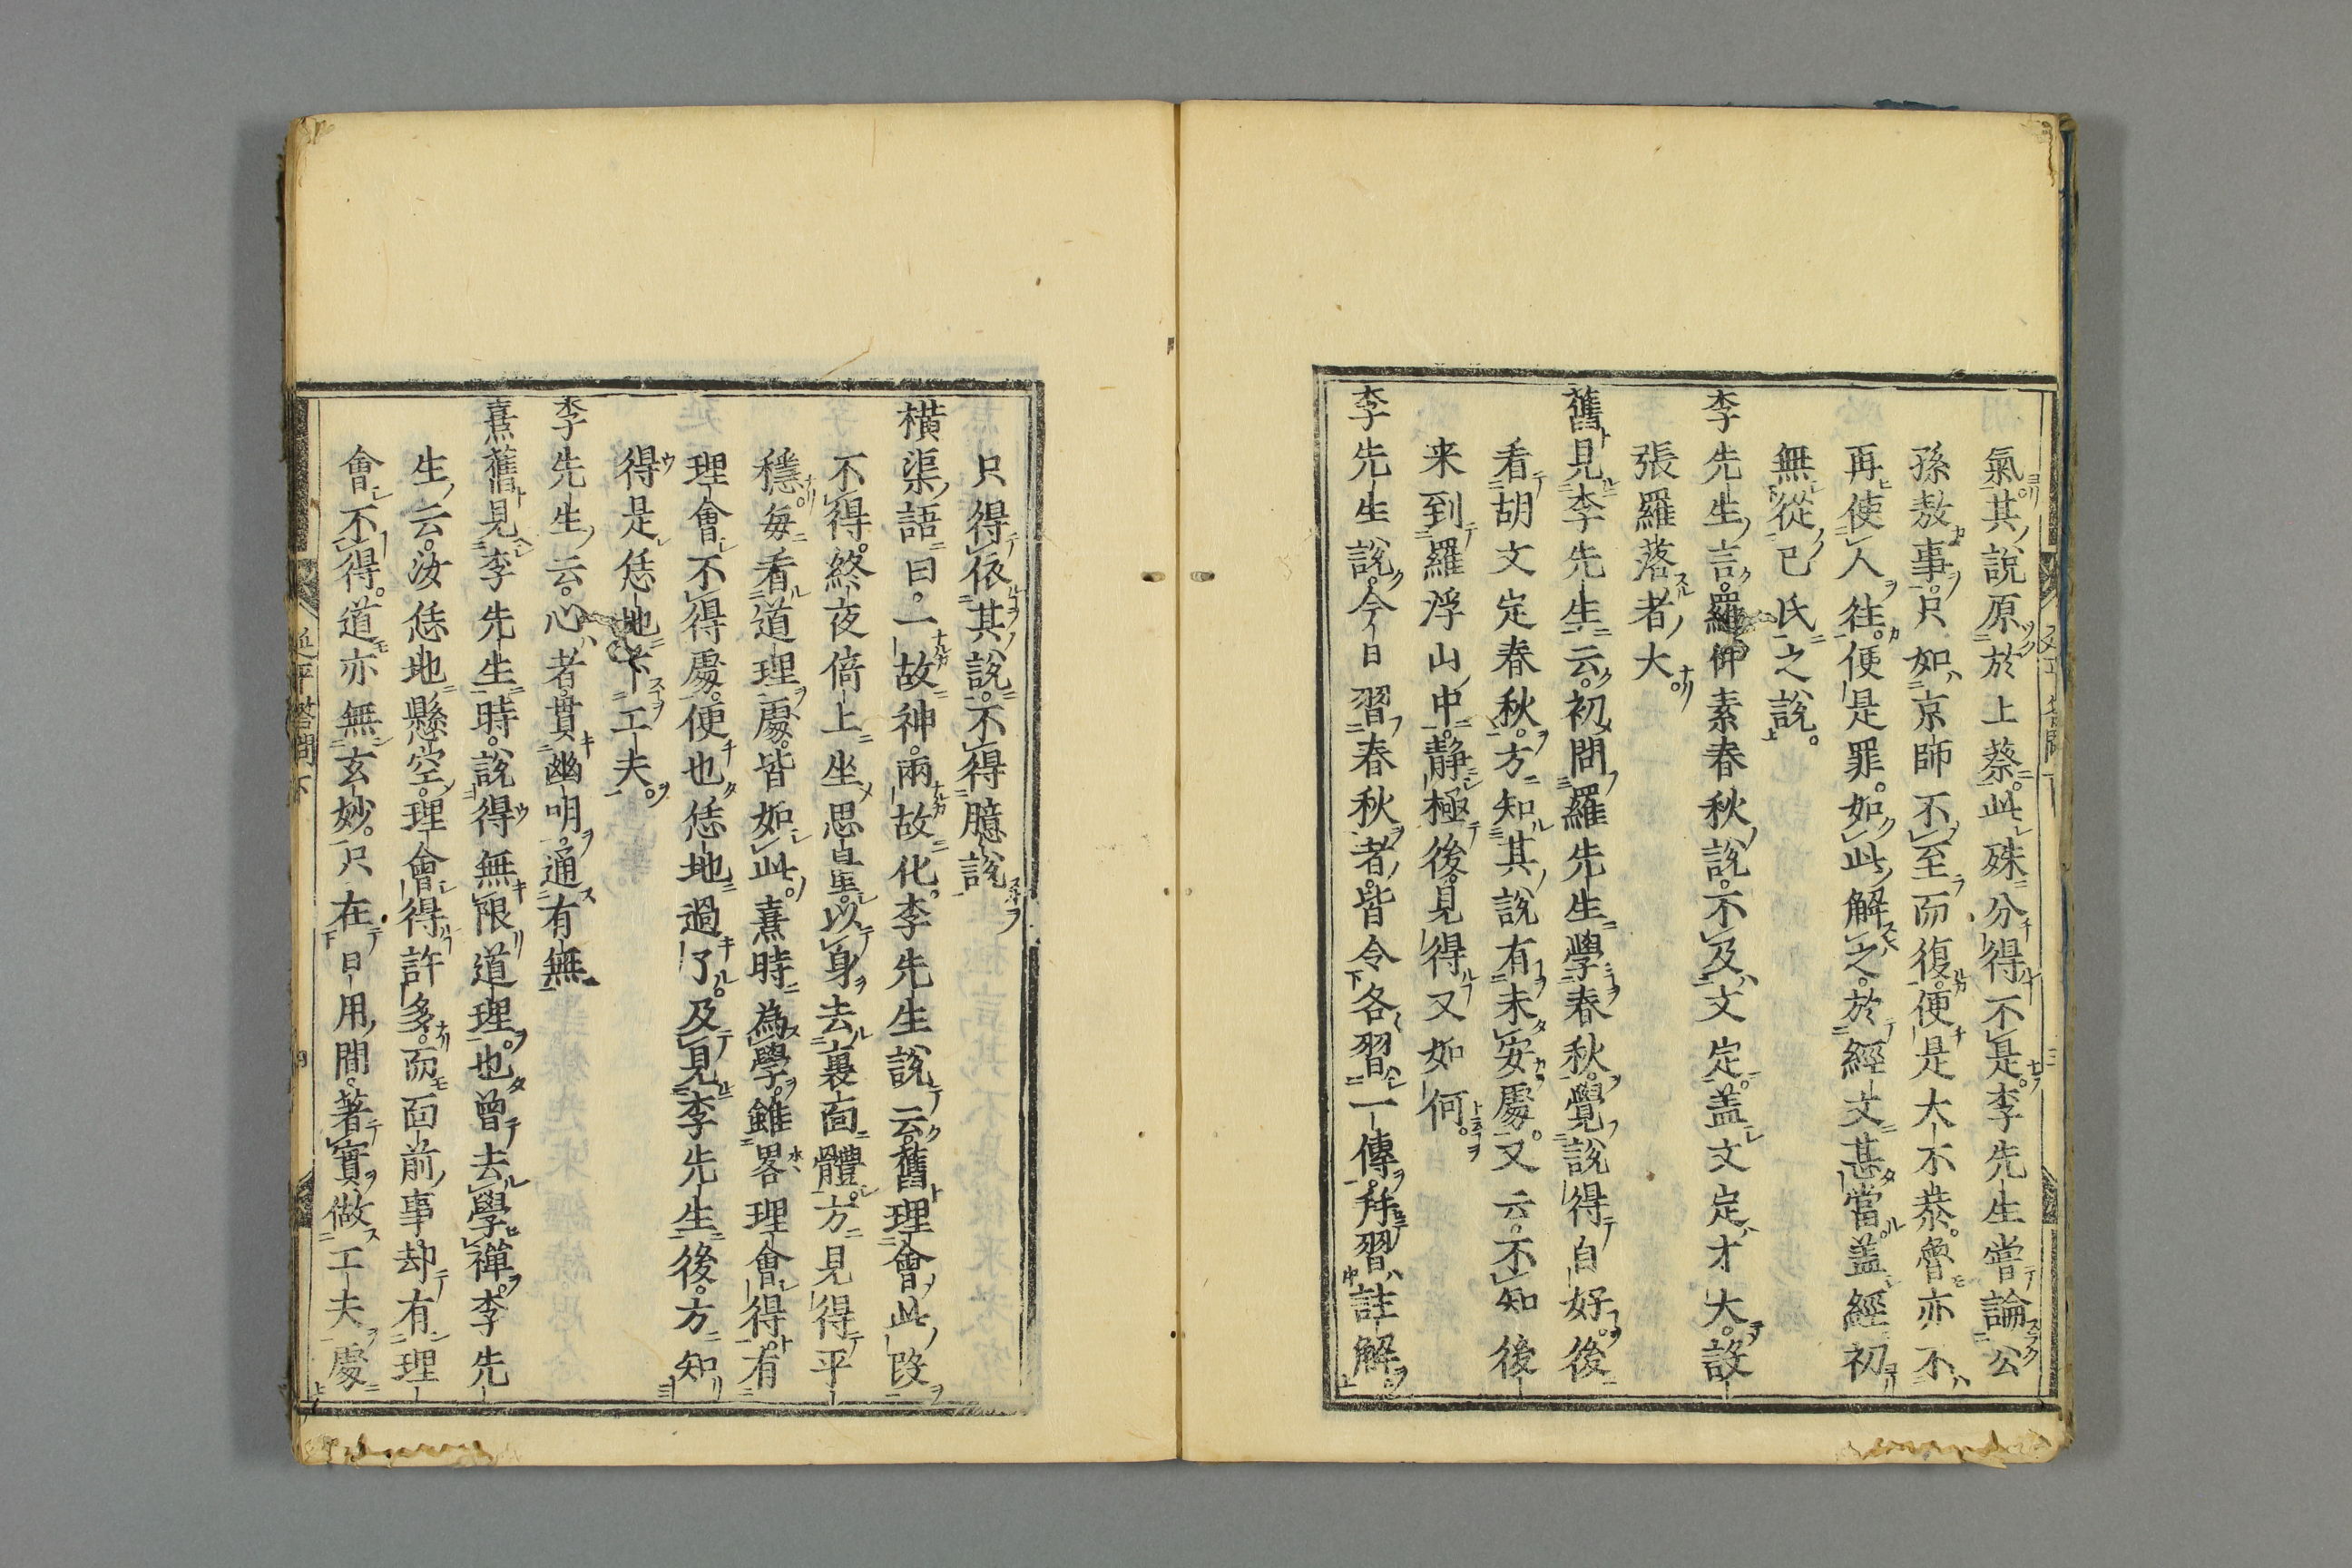 氣其說原於上蔡此殊分得不是李先生嘗論公
孫敖事只如京師不至而復便是大不恭魯亦不
再使人徃便是罪如此解之於經文甚當盖經初
無從已氏之說
李先生言羅仲素春秋說不及文定盖文定才大設
張羅落者大
舊見李先生云初問羅先生學春秋覺說得自好後
看胡文定春秋方知其說有未安處又云不知後
来到羅浮山中静極後見得又如何
李先生說令日習春秋者皆令各習一傳并習註解
只得依其說不得臆說
橫渠語曰一故神兩故化李先生說云舊理會此段
不得終夜倚上坐思量以身去裏面體方見得平
穩每看道理處皆如此熹時為學雖畧理會得有
理會不得處便也恁地過了及見李先生後方知
得是恁地下工夫
李先生云心者貫幽明通有無
熹舊見李先生時說得無限道理也曾去學禪李先
生云汝恁地懸空理會得許多而面前事却有理
會不得道亦無玄妙只在日用間著實做工夫處
延平答問下